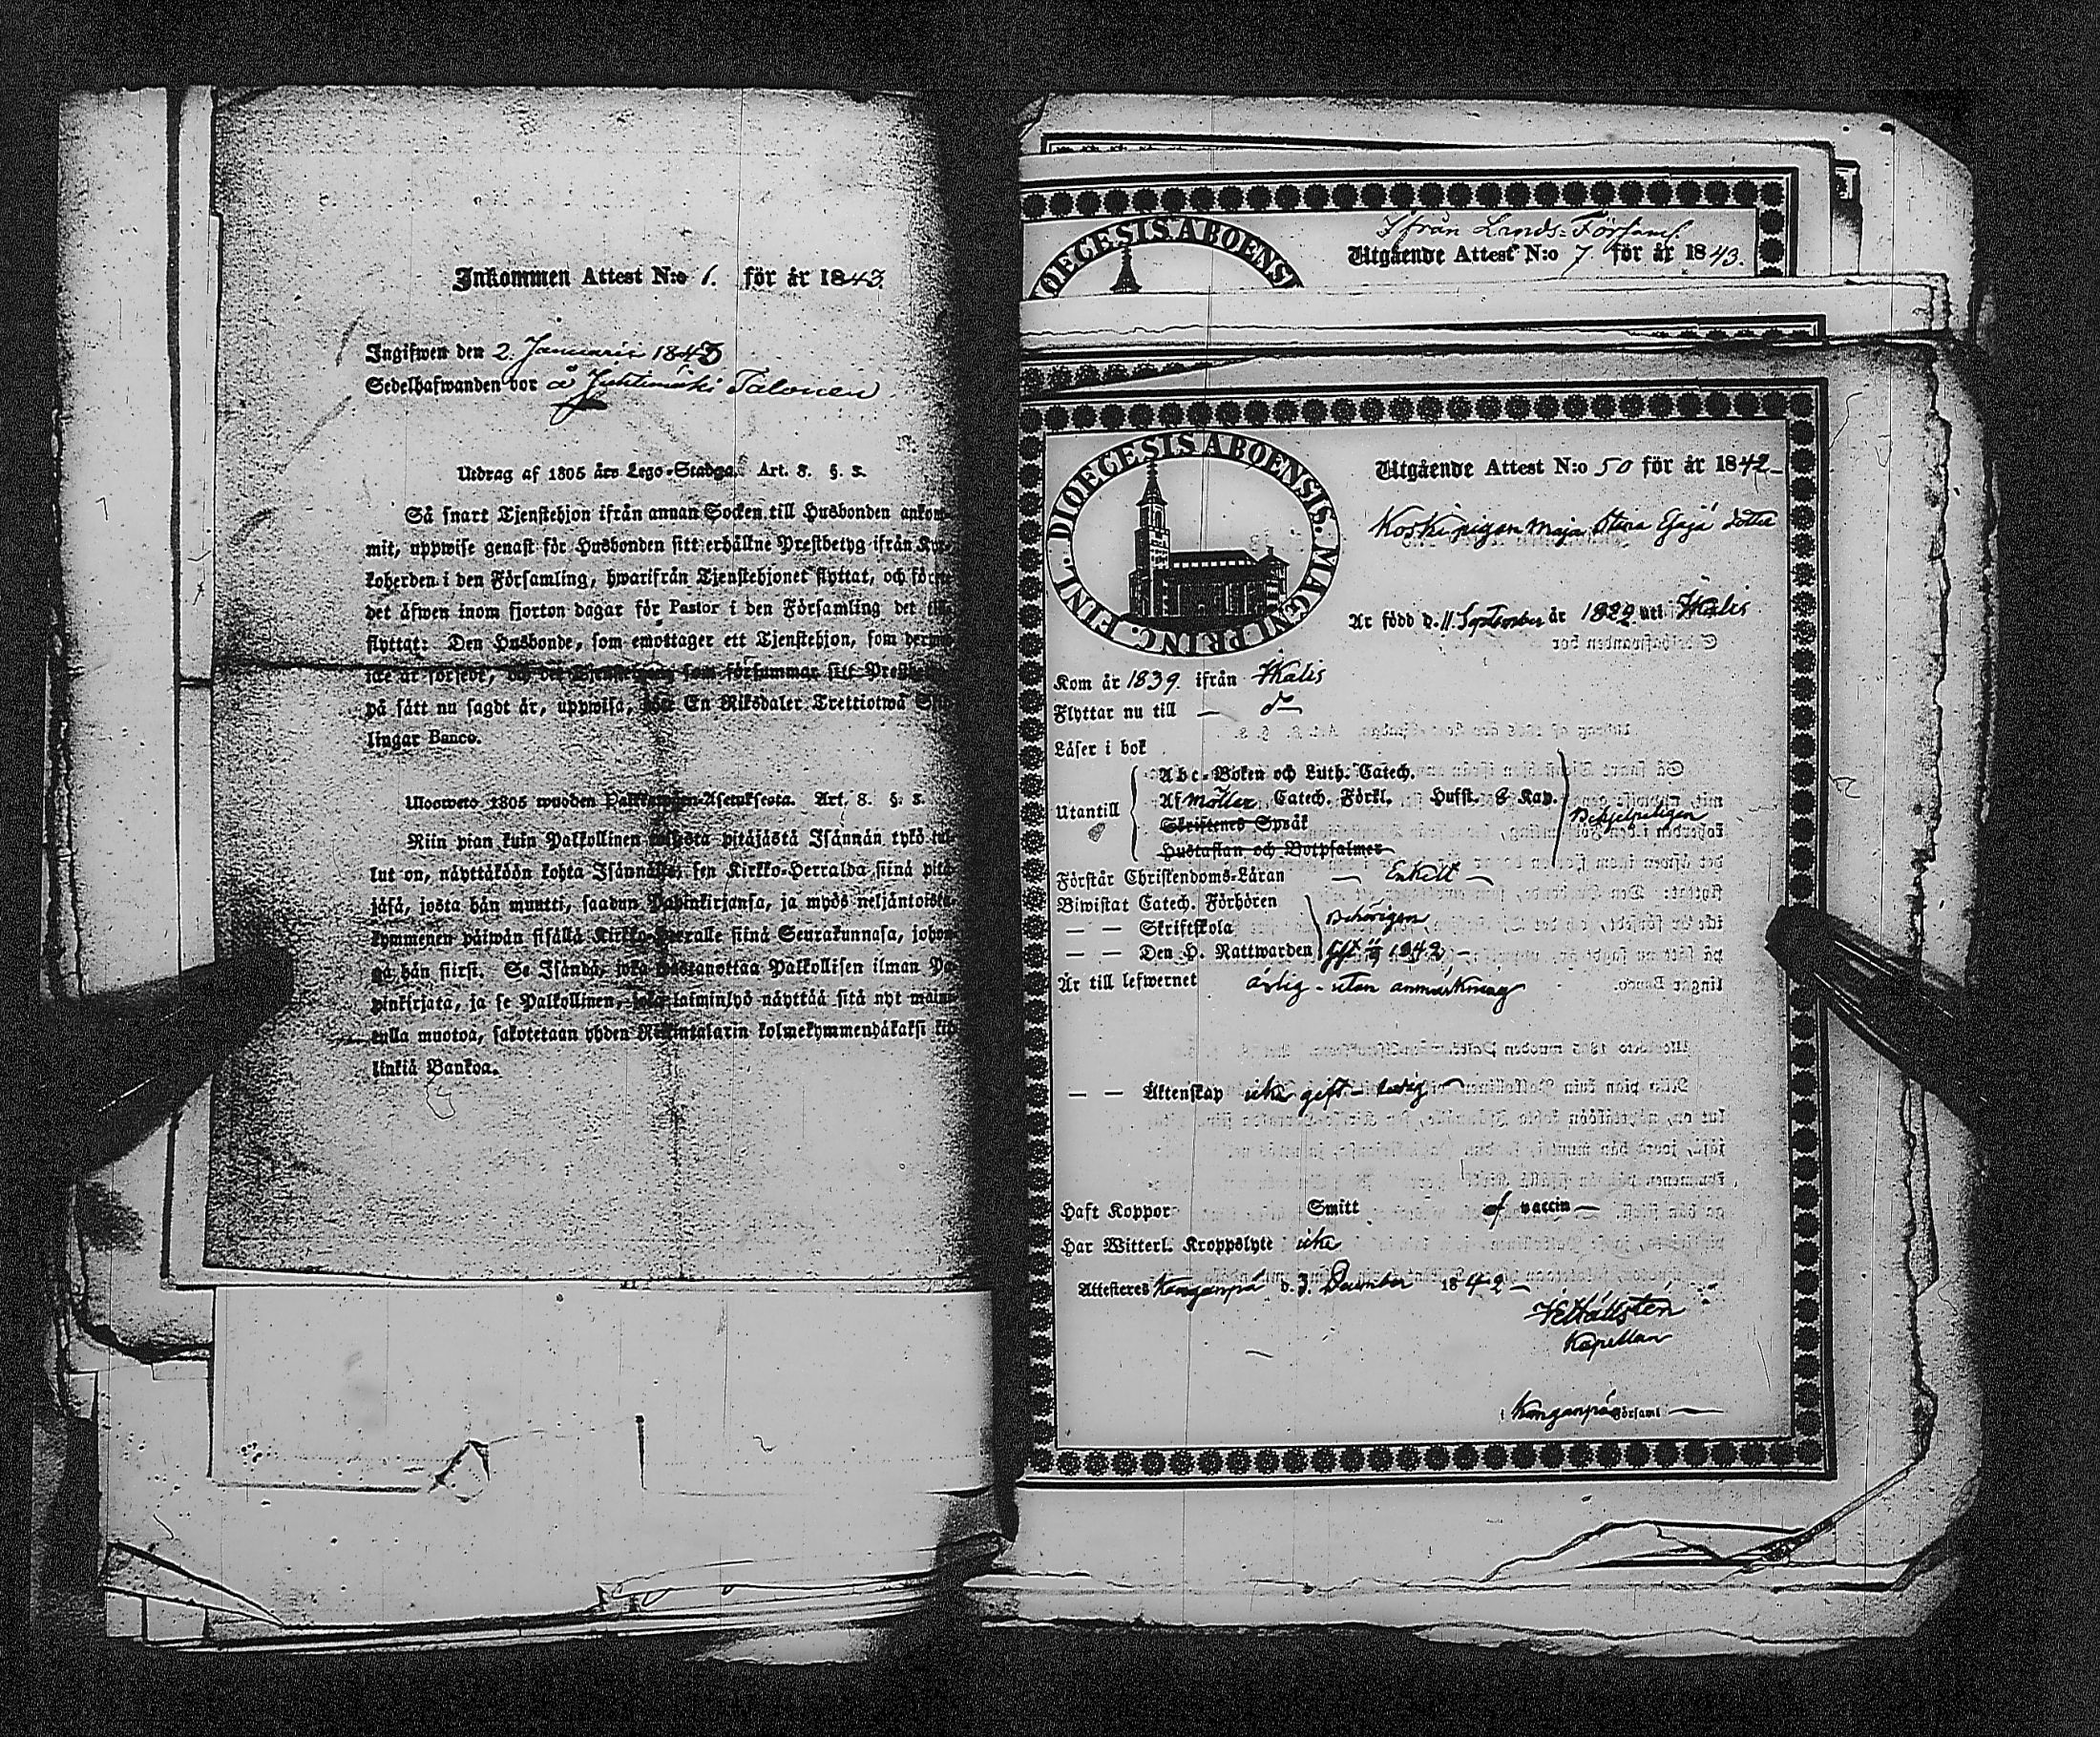 Inkommen Attest N:o 1. för år 1843.
Ingifwen den 2. Januarii 1843
Sedelhafwanden bor å Juhtimäki Talonen
Utdrag af 1805 års Lego-Stadga. Art. 8. §. 5.
Så snart Tjenstehjon ifrån annan Socken till Husbonden ankom-
mit, uppwise genast för Husbonden sitt erhållne Prestbetyg ifrån Kyr-
koherden i den Församling, hwarifrån Tjenstehjonet flyttat, och före
det äfwen inom fjorton dagar för Pastor i den Församling det
flyttat: Den Husbonde, som emottager ett Tjenstehjon, som dermed
icke är försedt, och det Tjenstehjon som försummar sitt
på sätt nu sagdt är, uppwisa, En Riksdaler Trettiotwå
lingar Banco.
Wuoweto 1805 wuoden Art. 8. §. 5.
Niin pian kuin Palkollinen pitäjästä Isännän tykö tul-
lut on, näyttäköön kohta Isännälle, sen Kirkko-Herralda siinä pitä-
jäsä, josta hän muutti, saadun Papinkirjansa, ja myös neljäntoista-
kymmenen päiwän sisällä Kirkko-Herralle siinä Seurakunnasa, johon-
ga hän siirsi. Se Isändä, joka wastanottaa Palkollisen ilman Pa-
pinkirjata, ja se Palkollinen, joka laiminlyö näyttää sitä nyt maini-
tulla muotoa, sakotetaan yhden Riikintalarin kolmekymmendäkaksi kil-
linkiä Bankoa.
DIOECESIS ABOENSI
Ifrån Lands-Församl.
Utgående Attest N:o 7 för år 1843.
FINL. DIOECESIS ABOENSIS. MAGNI PRINC.
Utgående Attest N:o 50 för år 1842
Koskipigan Maja Stina Esajä dotter
Är född d. 11 September år 1822 uti Ikalis
Kom år 1839. ifrån Ikalis
Flyttar nu till — do
Läser i bok
Utantill
Abc-Boken och Luth. Catech.
Af Möller Catech. Förkl. Hufst. & Kap.
Skriftenes Språk
Hustaflan och Botpsalmer
Förstår Christendoms-Läran — Enkelt —
Biwistat Catech. Förhören
— — Skriftskola behörigen
— — Den H. Nattwarden 1842
Är till lefwernet ärlig - utan anmärkning
— — Äktenskap icke gift - ledig
Haft Koppor Smitt af vaccin —
Har Witterl. Kroppslyte icke
Attesteres Kangarpä d. 3. December 1842
Hällstén
Kapellan
i Kangarpä Församl